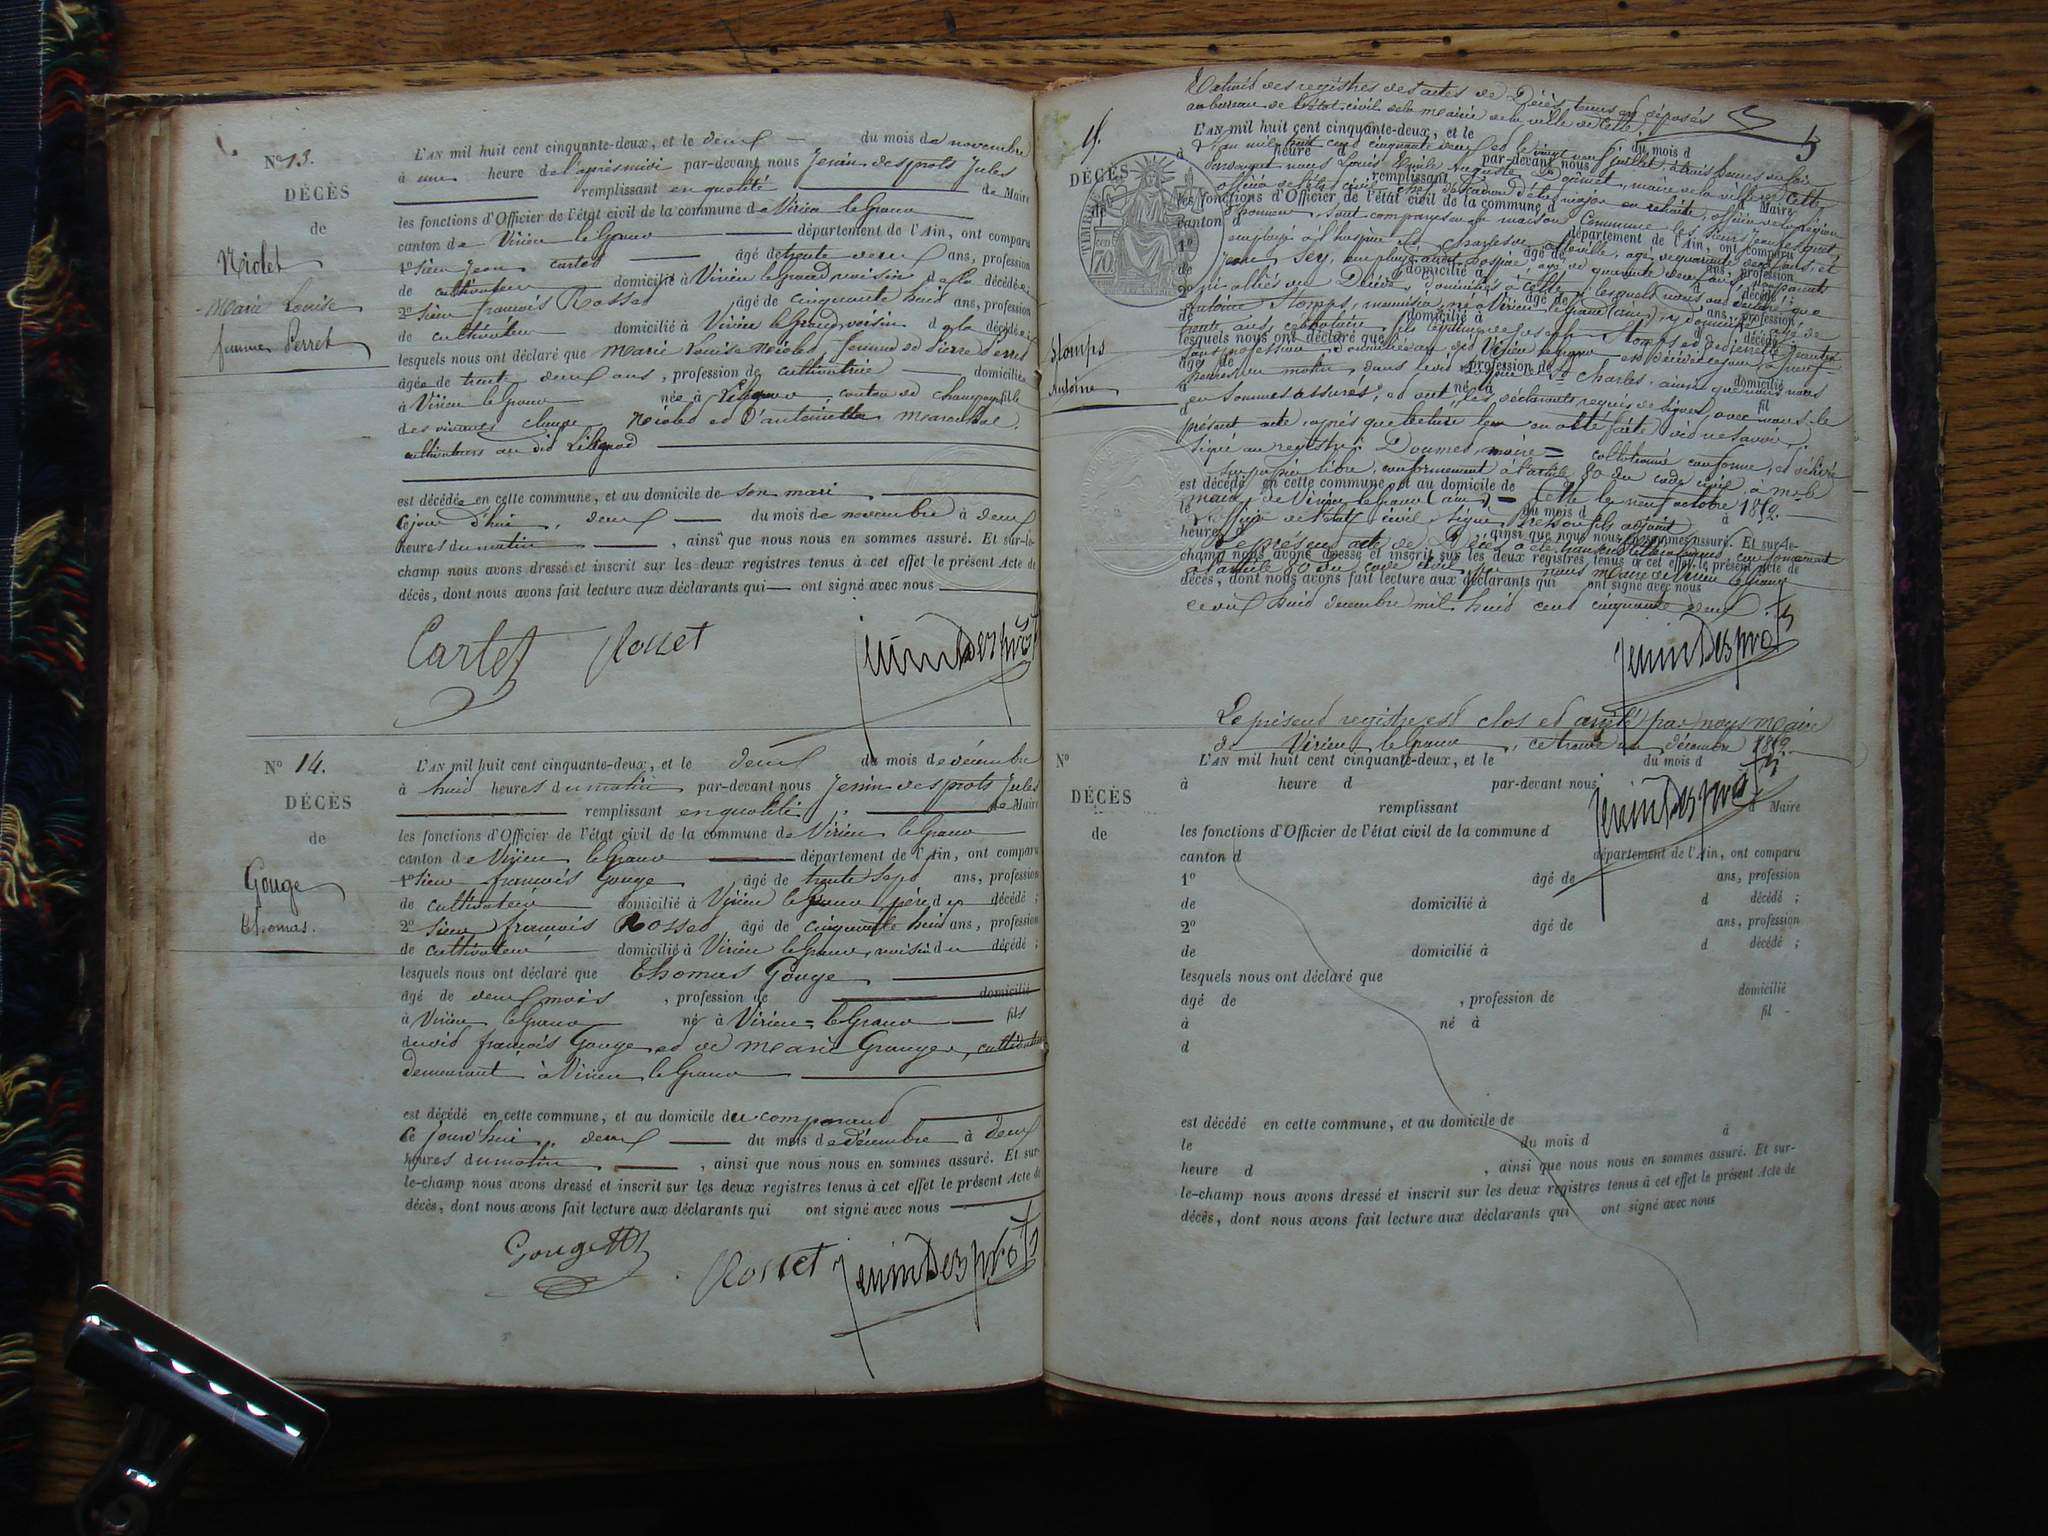 N° 13.
DÉCÈS
de
Niolet
Marie Louise
femme Perret
L'AN mil huit cent cinquante-deux, et le deux du mois de novembre
à une heure de l'après midi par-devant nous Jenin desprots Jules
remplissant en qualité de Maire
les fonctions d'Officier de l'état civil de la commune de Virieu le Grand
canton de Virieu le Grand département de l'Ain, ont comparu
1° Sieur Jean Cartet âgé de trente deux ans, profession
de cultivateur domicilié à Virieu le grand voisin de la décédée;
2° Sieur françois Rosset, âgé de cinquante huit ans, profession
de cultivateur domicilié à Virieu le Grand, voisin de la décédée;
lesquels nous ont déclaré que Marie Louise Niolet, femme de Pierre Perret
âgée de trente deux ans, profession de cultivatrice domiciliée
à Virieu le Grand née à canton de champagne fille
des vivants claude Niolet et d'antoinette
cultivateurs au dit
est décédée en cette commune, et au domicile de son mari
Cejourd'hui, deux du mois de novembre à deux
heures du matin, ainsi que nous nous en sommes assuré. Et sur-le-
champ nous avons dressé et inscrit sur les deux registres tenus à cet effet le présent Acte de
décès, dont nous avons fait lecture aux déclarants qui ont signé avec nous
Cartet Rosset Jenin Desprots
N° 14.
DÉCÈS
de
Gouge
Thomas.
L'AN mil huit cent cinquante-deux, et le deux du mois de décembre
à huit heures du matin par-devant nous Jenin desprots Jules
remplissant en qualité de Maire
les fonctions d'Officier de l'état civil de la commune de Virieu le Grand
canton de Virieu le Grand département de l'Ain, ont comparu
1° Sieur françois Gouge, âgé de trente sept ans, profession
de cultivateur domicilié à Virieu le Grand père du décédé;
2° Sieur françois Rosset âgé de cinquante huit ans, profession
de cultivateur domicilié à Virieu le Grand, voisin du décédé;
lesquels nous ont déclaré que Thomas Gouge
âgé de deux mois, profession de domicilié
à Virieu le Grand né à Virieu-le Grand fils
dudit françois Gouge et de Marie Granger, cultivateurs
demeurant à Virieu le Grand
est décédé en cette commune, et au domicile du comparant
Ce jourd'hui, deux du mois de décembre à deux
heures du matin, ainsi que nous nous en sommes assuré. Et sur-
le-champ nous avons dressé et inscrit sur les deux registres tenus à cet effet le présent Acte de
décès, dont nous avons fait lecture aux déclarants qui ont signé avec nous
Gouge Rosset Jenin Desprots
Extrait des registres des actes de Décès tenus et déposés
au bureau de l'Etat civil de la mairie de la ville de Cette
15.
DÉCÈS
de
Stomps
Antoine
L'AN mil huit cent cinquante-deux, et le du mois d
L'an mil huit cent cinquante deux et le vingt neuf juillet, à trois heures du soir
à heure d par-devant nous
devant nous Louis Emile Auguste Doumet, maire de la ville de Cette
remplissant Maire
officier de l'état civil, chef d'Escadron d'état major en retraite, officier de la Légion
les fonctions d'Officier de l'état civil de la commune d
d'honneur, sont comparus en la maison Commune les sieurs Jean
canton d département de l'Ain, ont comparu
employé à l'hospice St Charles de cette ville, âgé de quarante deux ans, et
1° âgé de ans, profession
Jean Sey, employé audit hospice, âgé de quarante deux ans,
de domicilié à d décédé;
ni alliés du Décédé, domiciliés à Cette; lesquels nous ont déclaré que
2° âgé de ans, profession
Antoine Stomps, menuisier, né à Virieu le Grand (ain), y domicilié, âgé de
de domicilié à d décédé;
trente ans, célibataire, fils légitime de Joseph Stomps et de
lesquels nous ont déclaré que
sans profession, domiciliés au dit Virieu le Grand est décédé ce jour, à neuf
âgé de, profession de domicilié
heures du matin, dans le dit hospice St Charles, ainsi que nous nous
à né à fil
en sommes assurés, et ont, les déclarants requis de signer avec nous le
présent acte, après que lecture leur en a été faite dit ne savoir.
Signé au registre: Doumet, maire = collationné conforme, et délivré
sur papier libre, conformément à l'article 80 du code civil, à Mr le
est décédé en cette commune, et au domicile de
maire de Virieu le Grand (ain) = Cette le neuf octobre 1852.
le du mois d à
L'officier de l'état civil, signé fils adjoint
heure d, ainsi que nous nous en sommes assuré. Et sur-le-
Le présent acte de Décès a été transcrit conformément
champ nous avons dressé et inscrit sur les deux registres tenus à cet effet le présent Acte de
à l'article 80 du code civil par nous Maire de Virieu le Grand
décès, dont nous avons fait lecture aux déclarants qui ont signé avec nous
ce huit décembre mil huit cent cinquante deux.
Jenin Desprots
Le présent registre est clos et arrêté par nous Maire
de Virieu le Grand, ce trente un décembre 1852.
Jenin Desprots
N°
DÉCÈS
de
L'AN mil huit cent cinquante-deux, et le du mois d
à heure d par-devant nous
remplissant d Maire
les fonctions d'Officier de l'état civil de la commune d
canton d département de l'Ain, ont comparu
1° âgé de ans, profession
de domicilié à d décédé;
2° âgé de ans, profession
de domicilié à d décédé;
lesquels nous ont déclaré que
âgé de, profession de domicilié
à né à fil
d
est décédé en cette commune, et au domicile de
le du mois d à
heure d, ainsi que nous nous en sommes assuré. Et sur-
le-champ nous avons dressé et inscrit sur les deux registres tenus à cet effet le présent Acte de
décès, dont nous avons fait lecture aux déclarants qui ont signé avec nous